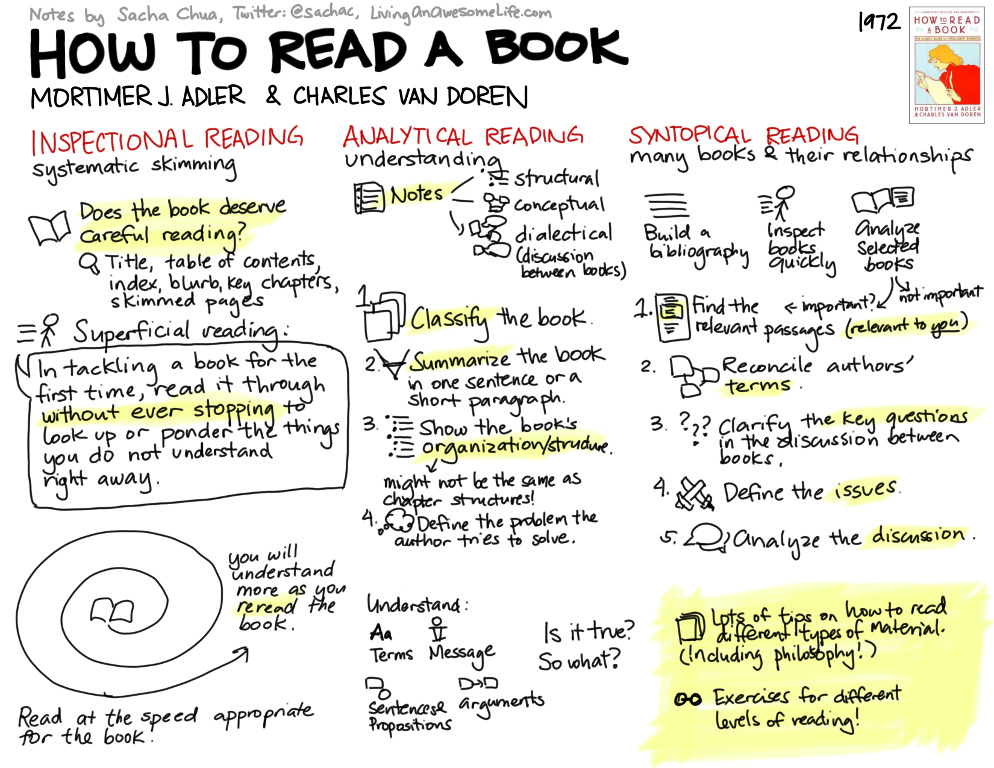 Notes by Sacha Chua, Twitter: @sachac, LivingAnAwesomeLife.com
HOW TO READ A BOOK
MORTIMER J. ADLER & CHARLES VAN DOREN
1972
HOW TO READ
A BOOK
MORTIMER J. ADLER
& CHARLES VAN DOREN
INSPECTIONAL READING
systematic skimming
Does the book deserve
careful reading?
Title, table of contents,
index, blurb, key chapters,
skimmed pages
Superficial reading:
In tackling a book for the
first time, read it through
without ever stopping to
look up or ponder the things
you do not understand
right away.
you will
understand
more as you
reread the
book.
Read at the speed appropriate
for the book!
ANALYTICAL READING
understanding
Notes
structural
conceptual
dialectical
(discussion
between books)
1.
Classify the book.
2. Summarize the book
in one sentence or a
short paragraph.
3. Show the book's
organization/structure.
might not be the same as
chapter structures!
4. Define the problem the
author tries to solve.
Understand:
Aa
Terms Message
Sentences &
Propositions
arguments
Is it true?
So what?
SYNTOPICAL READING
many books & their relationships
Build a
bibliography
Inspect
books
quickly
Analyze
Selected
books
important?
not important
1. Find the
relevant passages (relevant to you)
2. Reconcile authors'
terms.
3. ??? Clarify the key questions
in the discussion between
books.
4. Define the issues.
5. Analyze the discussion.
Lots of tips on how to read
different types of material.
(Including philosophy!)
Exercises for different
levels of reading!